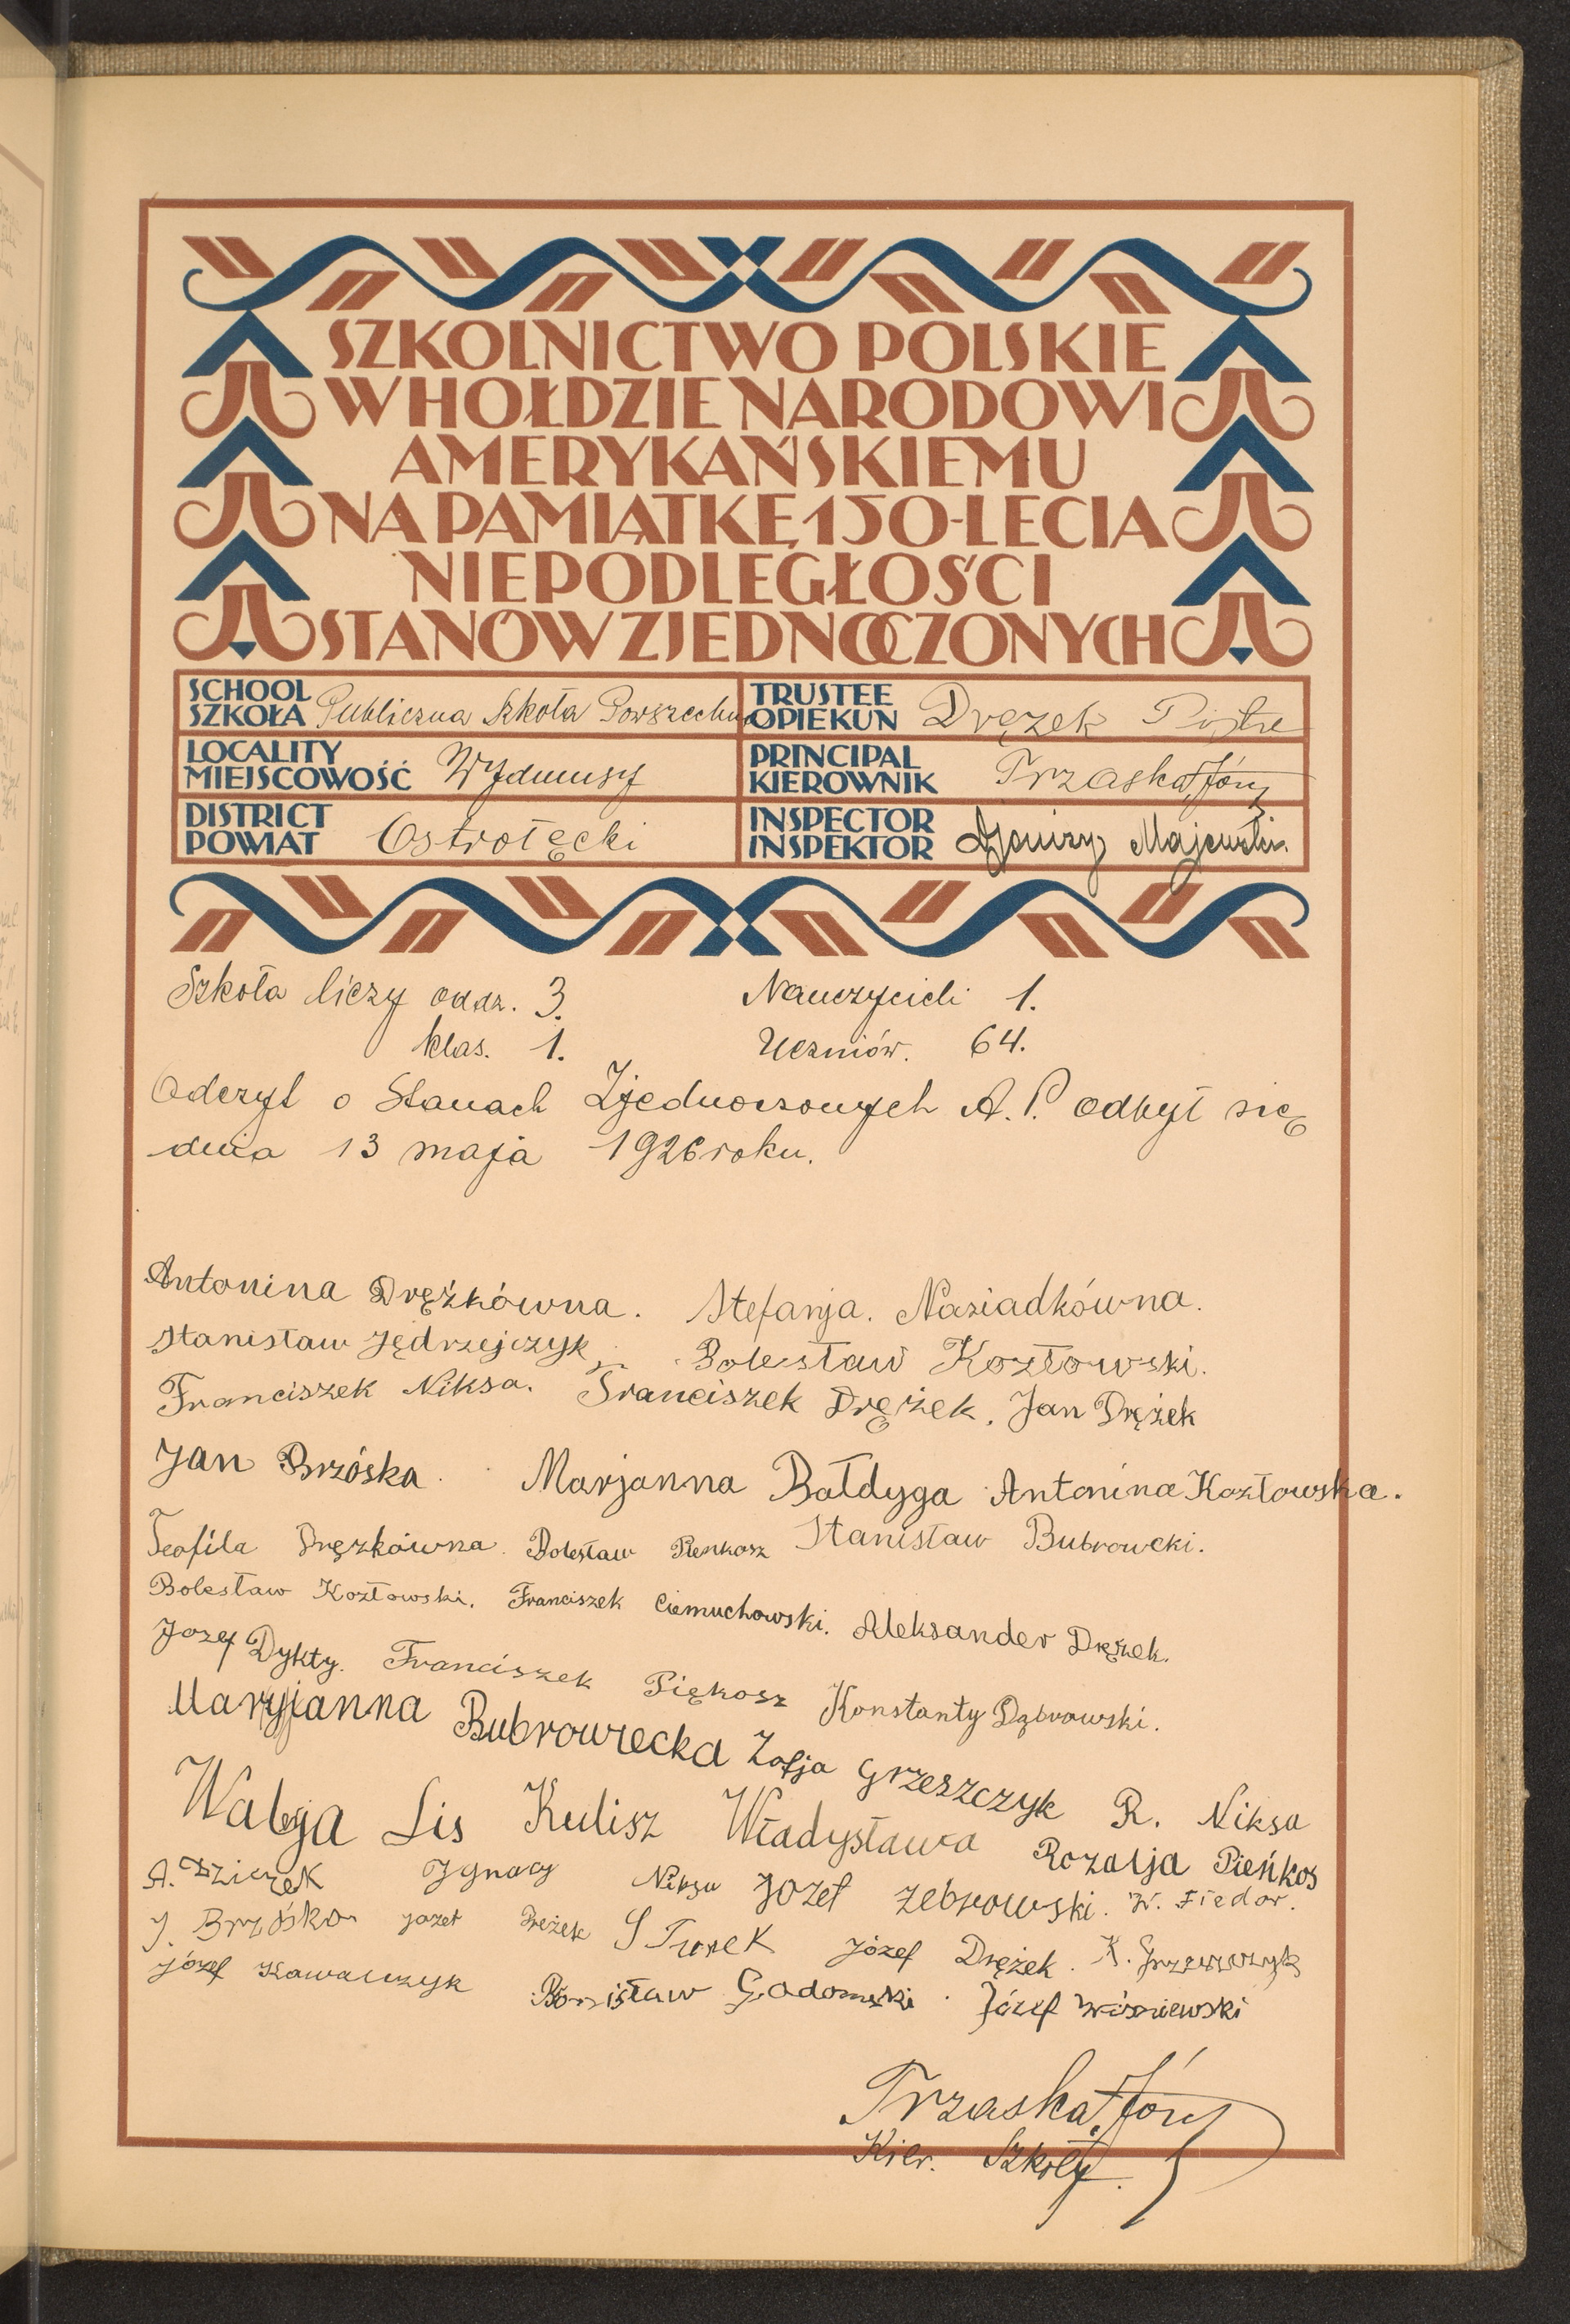 SZKOLNICTWO POLSKIE
W HOŁDZIE NARODOWI
AMERYKAŃSKIEMU
NA PAMIĄTKĘ 150-LECIA
NIEPODLEGŁOŚCI
STANÓW ZJEDNOCZONYCH
SCHOOL
SZKOŁA Publiczna Szkoła Powszechna
TRUSTEE
OPIEKUN Drężek Piotr
LOCALITY
MIEJSCOWOŚĆ Wydmusy
PRINCIPAL
KIEROWNIK Trzaska
DISTRICT
POWIAT Ostrołęcki
INSPECTOR
INSPEKTOR Majewski
Szkoła liczy oddz. 3. Nauczycieli 1.
klas. 1. Uczniów. 64.
Odczyt o Stanach Zjednoczonych A. P. odbył się
dnia 13 maja 1926 roku.
Antonina Drężkówna. Stefanja. Nasiadkówna.
Stanisław Jędrzejczyk Bolesław Kozłowski.
Franciszek Niksa. Franciszek Drężek. Jan Drężek
Jan Brzóska. Marjanna Bałdyga Antonina Kozłowska.
Teofila Drężkówna. Bolesław Pienkosz Stanisław Bubrowcki.
Bolesław Kozłowski. Franciszek Ciemuchowski. Aleksander Drężek.
Jozef Dykty. Franciszek Piękosz Konstanty Dąbrowski.
Maryjanna Bubrowiecka Zofja Grzeszczyk R. Niksa
Walerja Lis Kulisz Władysława Rozalja Pieńkos
A. Ignacy Niksa Jozef Żebrowski. W. Fiedor.
J. Brzóska Jozef Drężek S Turek Józef Drężek. K. Grzeszczyk
Józef Kawalczyk Bronisław Gadomski. Józef Wiśniewski
Trzaska
Kier. Szkoły.